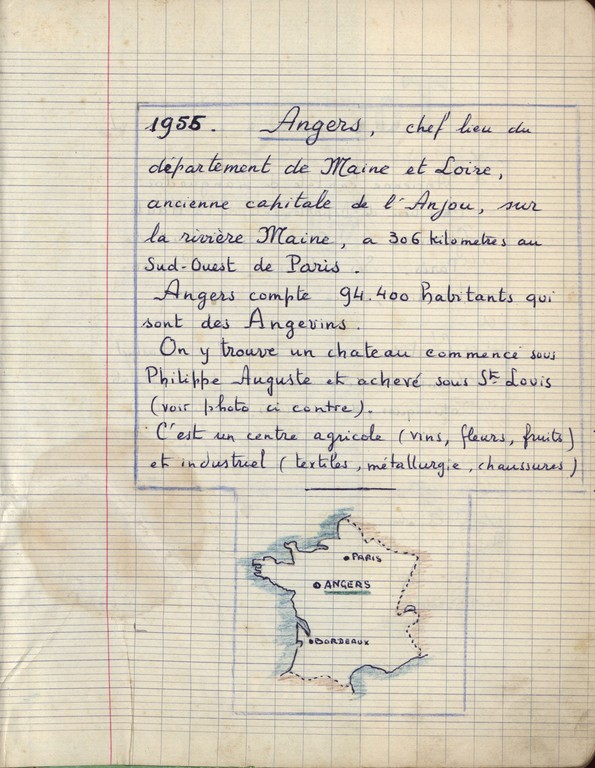 1955. Angers, chef lieu du
département de Maine et Loire,
ancienne capitale de l'Anjou, sur
la rivière Maine, a 306 kilometres au
Sud-Ouest de Paris.
Angers compte 94.400 habitants qui
sont des Angevins.
On y trouve un chateau commencé sous
Philippe Auguste et achevé sous St Louis
(voir photo ci contre).
C'est un centre agricole (vins, fleurs, fruits)
et industriel (textiles, métallurgie, chaussures)
PARIS
ANGERS
BORDEAUX